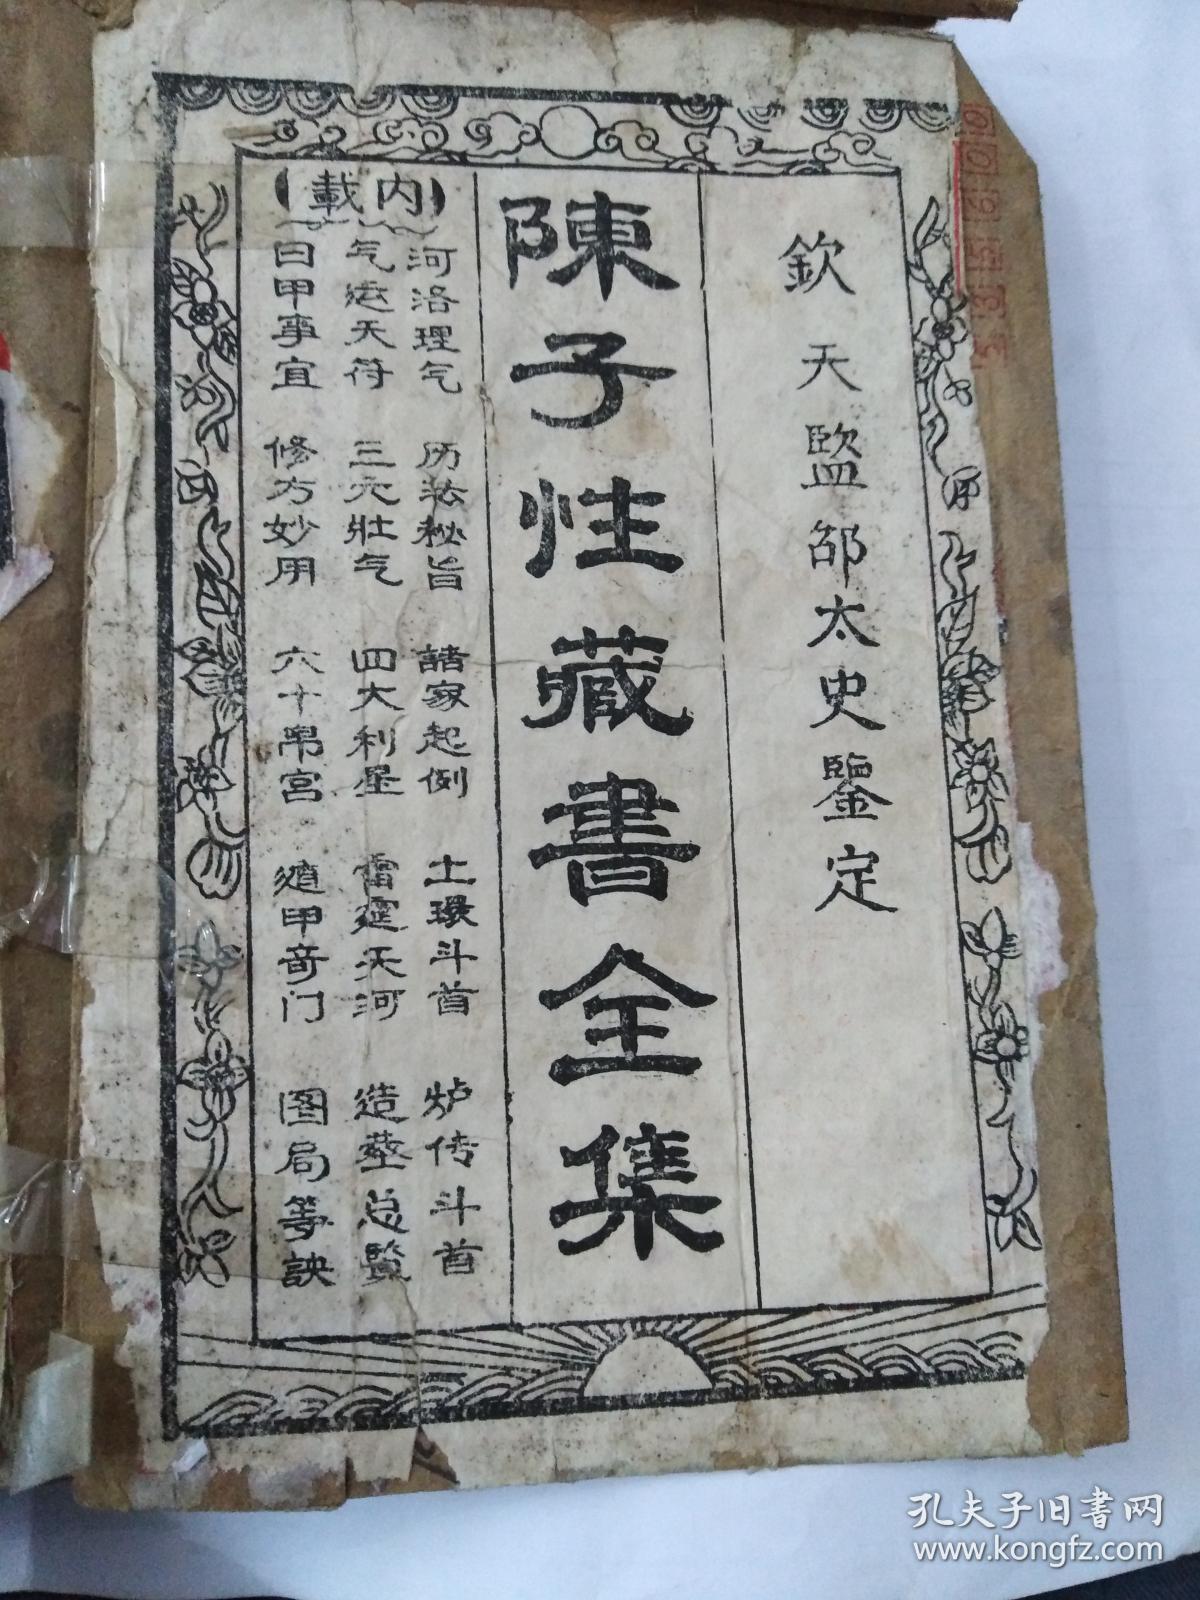 欽天監邵太史鑒定
陳子性藏書全集
【內載】
河洛理气 历法秘旨 諸家起例 土環斗首 炉传斗首
气运天符 三元壯气 四大利星 雷霆天河 造葬总覧
曰甲事宜 修方妙用 六十帛宫 遁甲奇门 图局等訣
孔夫子旧书网
www.kongfz.com